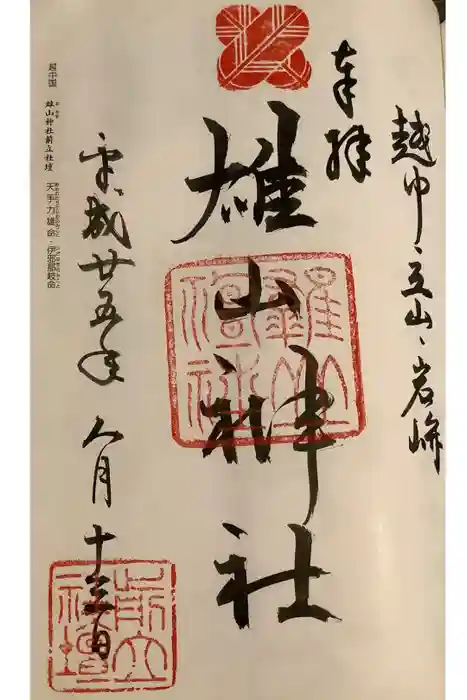 越中、立山、岩峅
奉拝
雄山神社
平成廿五年 九月十三日
前立社壇
越中国 雄山神社前立社壇 天手力雄命・伊邪那岐命